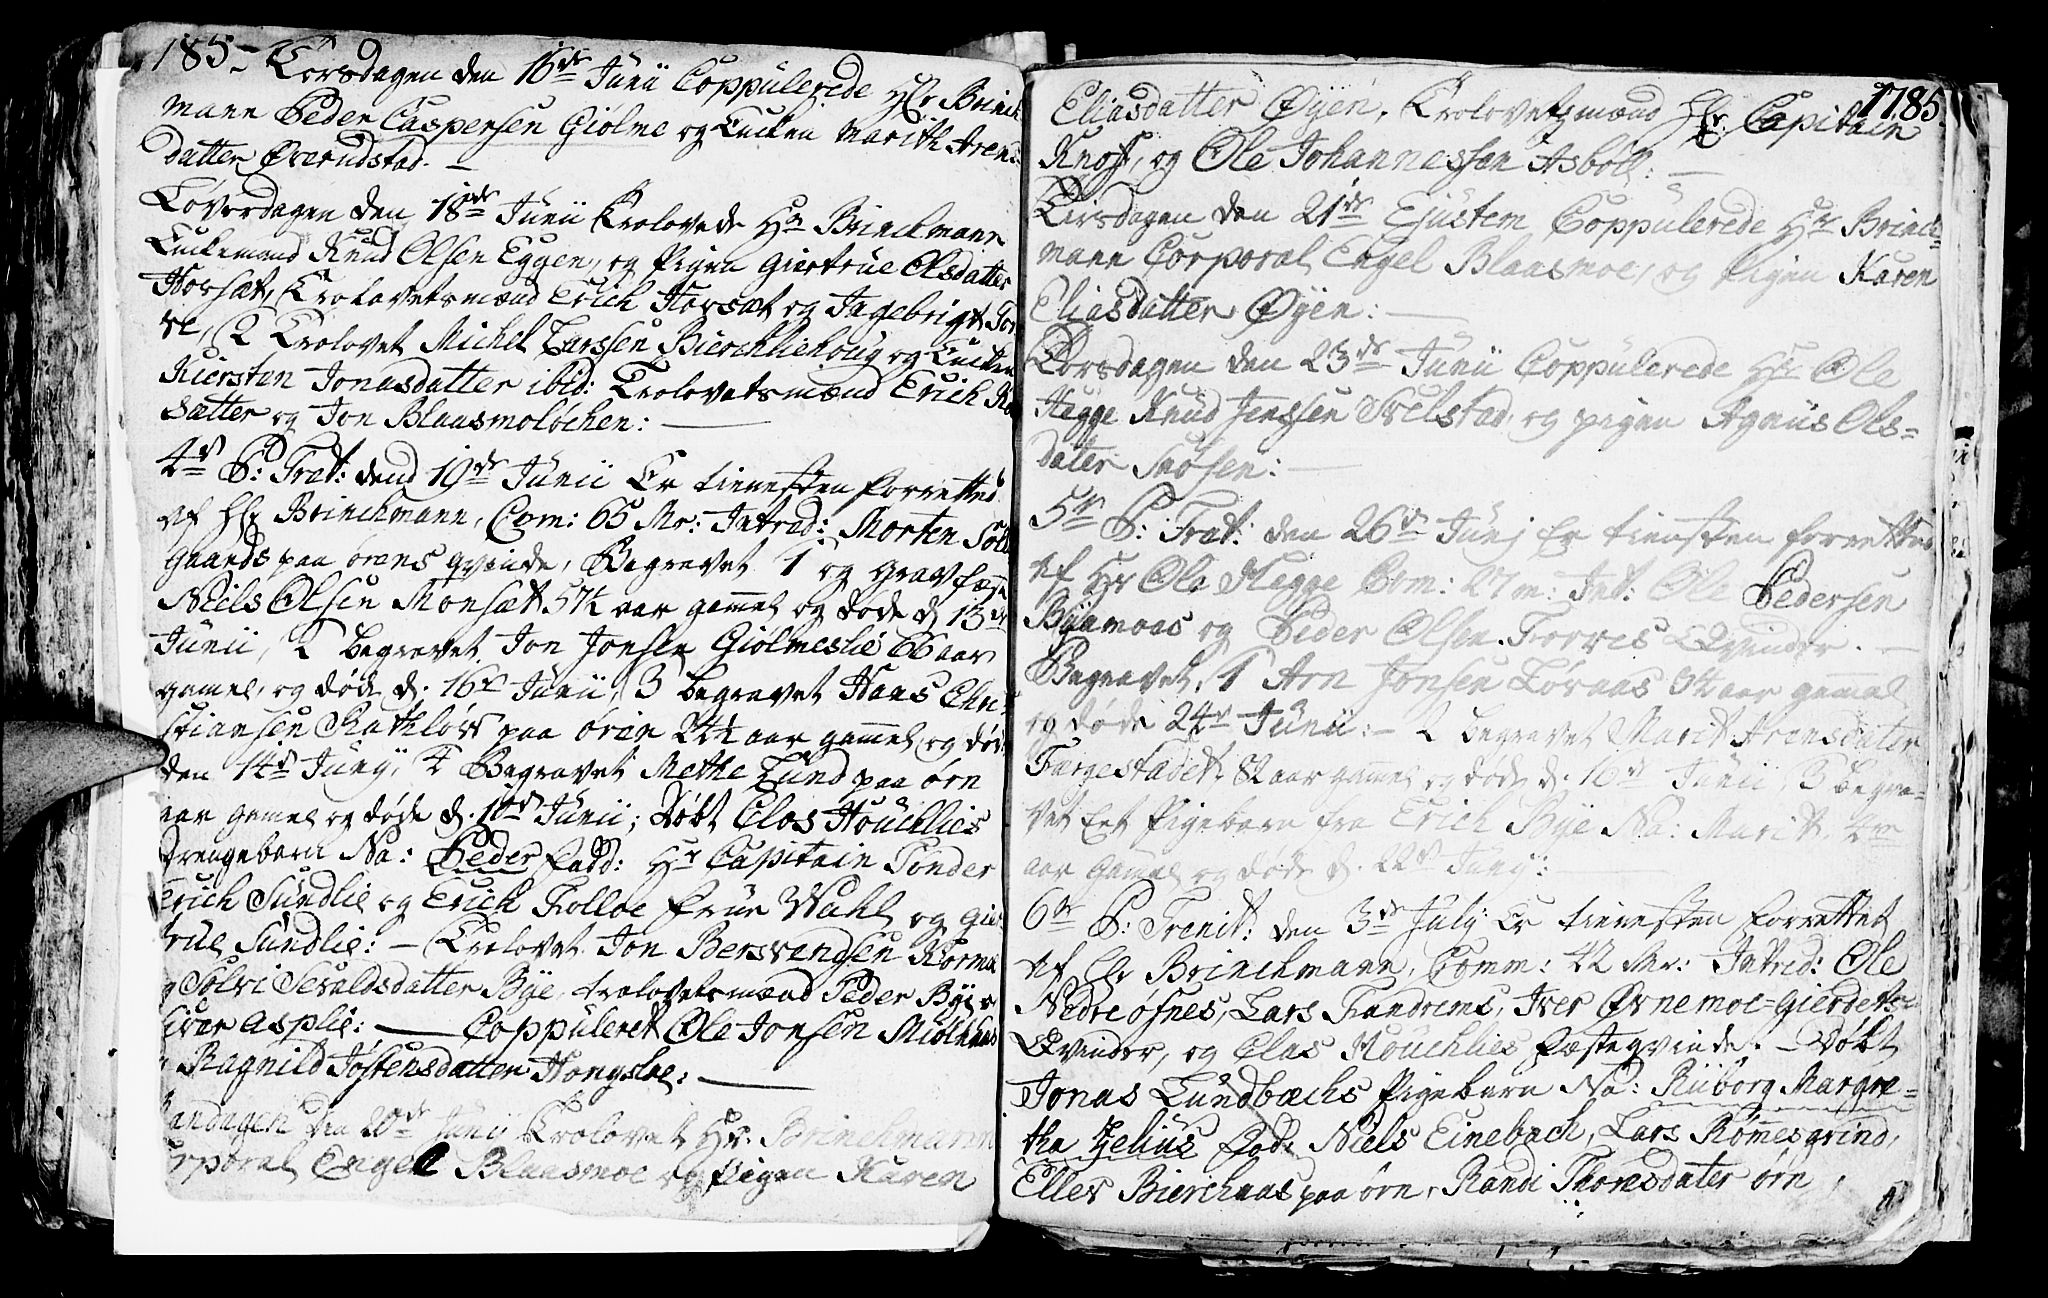 185 – Torsdagen den 16de Junii Coppulerede Hr Brinch
mann Peder Caspersen Giølme og Encken Marith Arens
datter Overudstad. –
Løverdagen den 18de Junii Trolovede Hr Brinchmann
Enckemand Knud Olsen Eggen, og Pigen Giertrue Olsdatter
Horsæt, Trolovetsmænd Erich Horsæt og Ingebrigt
re, 2 Trolovet Michel Larssen Bierchliehoug og Encken
Kiersten Jonasdatter ibid: Trolovetsmænd Erich
sætter og Jon Blaasmoløchen: –
4de S: Trat: dend 19de Junii Er tienesten forrettet
af Hr Brinchmann, Com: 65 Mr: Introd: Morten
gaards paa ørens qvinde, Begravet 1 og gravfæst
Niels Olsen Monsæt 57½ aar gammel og døde d 13de
Junii, 2 begravet Jon Jonsen Giølmeslie 66 aar
gamel, og døde d. 16de Junii, 3 begravet Hans Chri
stiansen Rathløv paa øren 24½ aar gammel og døde
den 14de Junij, 4 Begravet Mette Lund paa ørn
aar gamel og døde d. 10de Junii; Døbt Clos Houchlies
Drengebarn Na: Peder Fadd: Hr Capitain Tonder
Erich Sundlie og Erich Tolloe Frue Wahl og Gier
true Sundlie: – Trolovet Jon Bersvendsen
og Solvi Sevaldsdatter Bye, trolovetsmænd Peder Bye og
Iver Asplie: – Coppuleret Ole Jonsen
Ragnild Jøstensdatter Hongsloe: –
Mandagen den 20de Junij Trolovet Hr: Brinchmann
Corporal Engel Blaasmoe og Pigen Karen
1785
Eliasdatter Øyen, Trolovetsmænd Hr: Capitain
Knoff, og Ole Johannessen Asbøll: –
Tirsdagen den 21de Ejustem Coppulerede Hr Brinch-
mann Corporal Engel Blaasmoe, og Pigen Karen
Eliasdatter Øyen: –
Torsdagen den 23de Junii Coppulerede Hr Ole
Hegge Knud Jenssen Welstad, og pigen Agnius Ols=
dater Snøsen: –
5te S: Trat: den 26de Junj Er tienesten forrettet
af Hr Ole Hegge Com: 27 m: Int: Ole Pedersen
Byemoes og Peder Olsen Torves Qvinder. –
Begravet, 1 Arn Jonsen Løraas aar gammel
og døde 24de Junii: – 2 begravet Marit Arensdater
Færgestadet 82 aar gammel og døde d: 16de Junii, 3 begra-
vet Et Pigebarn fra Erich Bye Na: Marit
aar gamel og døde d. 22de Junij: –
6te S: Trenit: den 3de July Er tienesten forrettet
af Hr Brinchmann, Comm: 42 Mr: Introd: Ole
Nedreøsnes, Lars Tandrems, Iver Øvnemoe=Gierdets
Qvinder, og Clas Houchlies Fæsteqvinde. – Døbt
Jonas Lundbæchs Pigebarn Na: Riiborg Margre=
tha Helius Fad: Niels Einebach, Lars Rømmesgrind,
Ellev Bierchaas paa ørn, Randi Thomsdater ørn